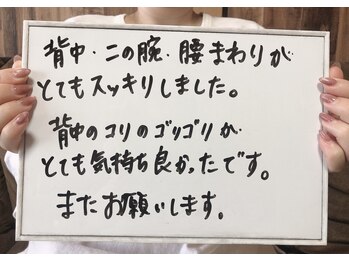 背中・二の腕・腰まわりが
とてもスッキリしました。
背中のコリのゴリゴリが
とても気持ち良かったです。
またお願いします。